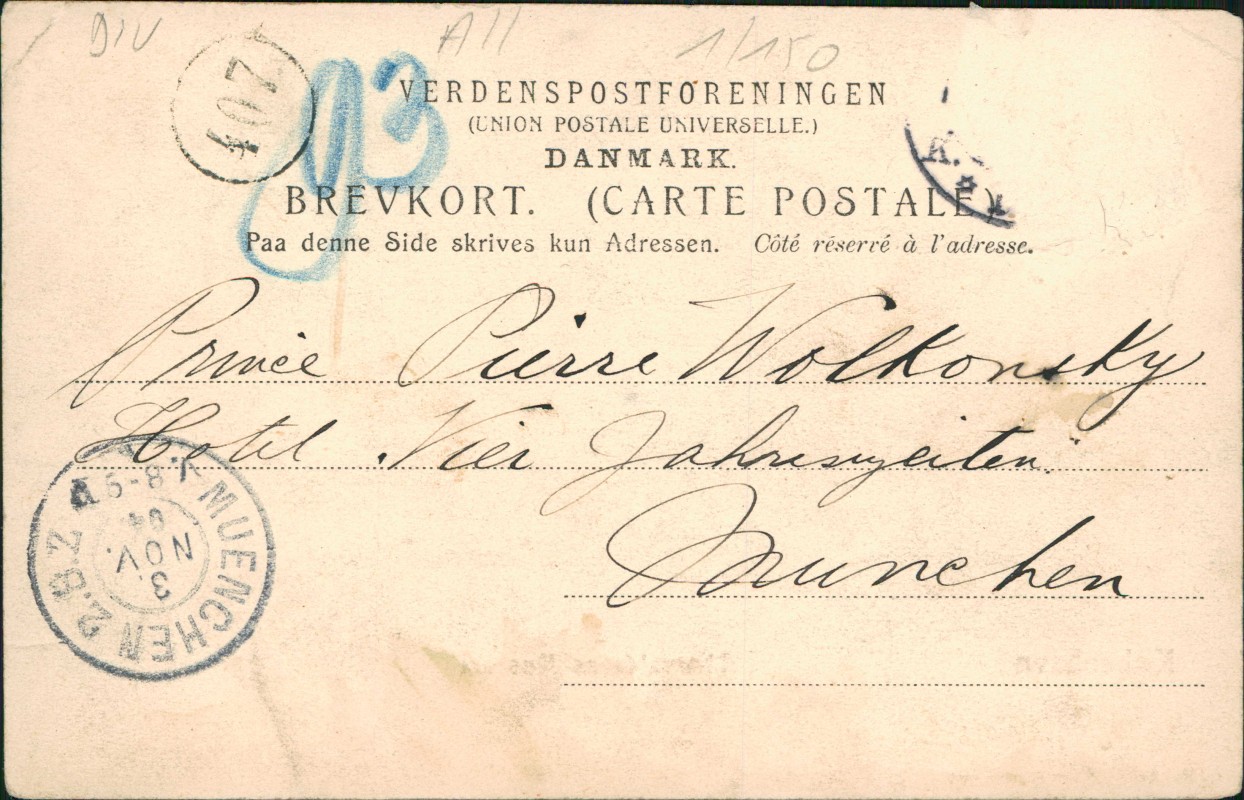 DIV
All
1/150
407
93
VERDENSPOSTFORENINGEN
(UNION POSTALE UNIVERSELLE.)
DANMARK.
K.
BREVKORT. (CARTE POSTALE)
Paa denne Side skrives kun Adressen. Côté réservé à l'adresse.
Prince Pierre Wolkonsky
Hotel Vier Jahreszeiten
Munchen
MUENCHEN 2.B.Z
5-8
04
NOV.
3